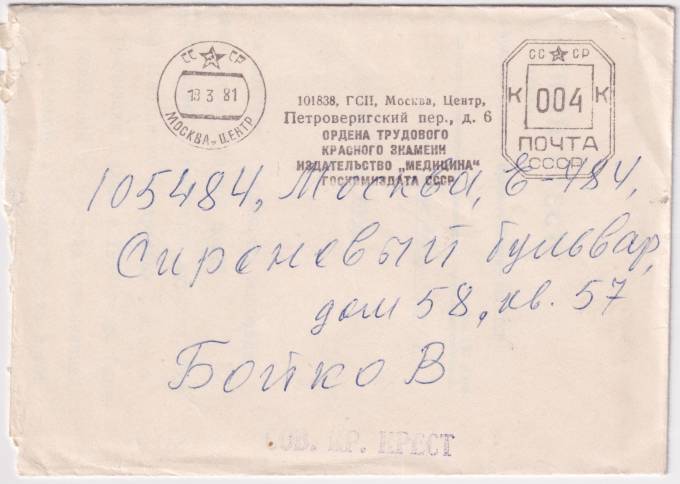 СС СР
19 3 81
МОСКВА-ЦЕНТР
СС СР
К 004 К
ПОЧТА
СССР
101838, ГСП, Москва, Центр,
Петроверигский пер., д. 6
ОРДЕНА ТРУДОВОГО
КРАСНОГО ЗНАМЕНИ
ИЗДАТЕЛЬСТВО „МЕДИЦИНА“
ГОСКОМИЗДАТА СССР
105484, Москва, Е-484,
Сиреневый бульвар,
дом 58, кв. 57
Бойко В
СОВ. КР. КРЕСТ